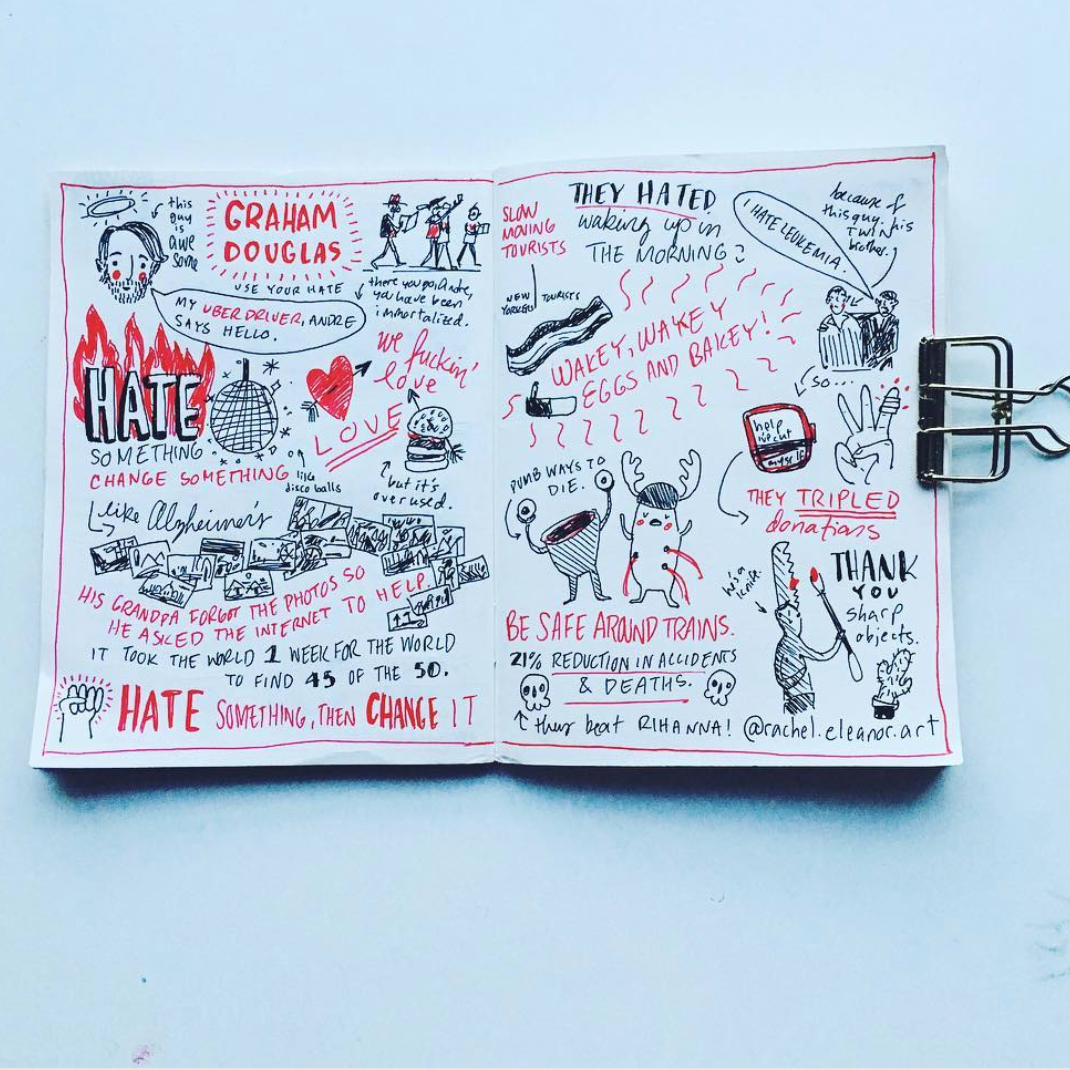 this
guy
is
awe
some
GRAHAM
DOUGLAS
USE YOUR HATE
there you go, Nate,
you have been
immortalized.
MY UBER DRIVER, ANDRE
SAYS HELLO.
HATE
SOMETHING
CHANGE SOMETHING
like
disco balls
we fuckin'
love
LOVE
but it's
overused.
like Alzheimer's
HIS GRANDPA FORGOT THE PHOTOS SO
HE ASKED THE INTERNET TO HELP.
IT TOOK THE WORLD 1 WEEK FOR THE WORLD
TO FIND 45 OF THE 50.
HATE SOMETHING, THEN CHANGE IT
SLOW
MOVING
TOURISTS
NEW
YORKERS
TOURISTS
THEY HATED
waking up in
THE MORNING:
WAKEY, WAKEY
EGGS AND BAKEY!
I HATE LEUKEMIA.
because of
this guy, his
twin
brother.
SO...
help
i've cut
myself
THEY TRIPLED
donations
DUMB WAYS TO
DIE.
BE SAFE AROUND TRAINS.
21% REDUCTION IN ACCIDENTS
& DEATHS.
they beat RIHANNA!
he's a
knife.
THANK
YOU
sharp
objects.
@rachel.eleanor.art